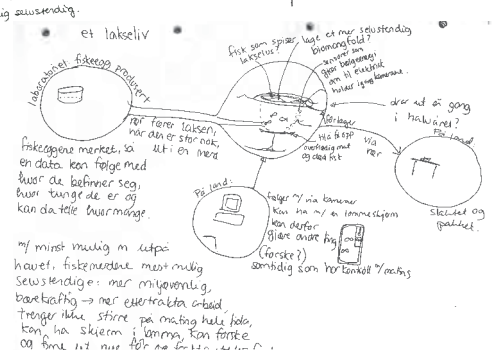 ig selvstendig.
et lakseliv
laboratoriet: fiskeegg produsert
fisk som spiser lakselus?
laget et mer selvstendig
biomangfold?
sensorer som
gjør bølgeenergi
om til elektrisk
holder igang kameraene.
rør fører laksen,
når den er stor nok,
ut i en merd
fiskeeggene merket, så
en data kan følge med
hvor de befinner seg,
hvor tunge de er og
kan da telle hvor mange.
drar ut en gang
i halvåret?
fôrlager
tilå få opp
overflødig mat
og død fisk
via
rør
På land
slaktet og
pakket.
På land:
følger m/ via kameraer
kan ha m/ en lommeskjerm
kan derfor
gjøre andre ting
(forske?)
samtidig som har kontroll m/ mating
m/ minst mulig m utpå
havet, fiskemerdene mest mulig
selvstendige: mer miljøvennlig,
bærekraftig → mer ettertrakta arbeid,
trenger ikke stirre på mating hele tida,
kan ha skjerm i lomma, kan forske
og finne ut nye